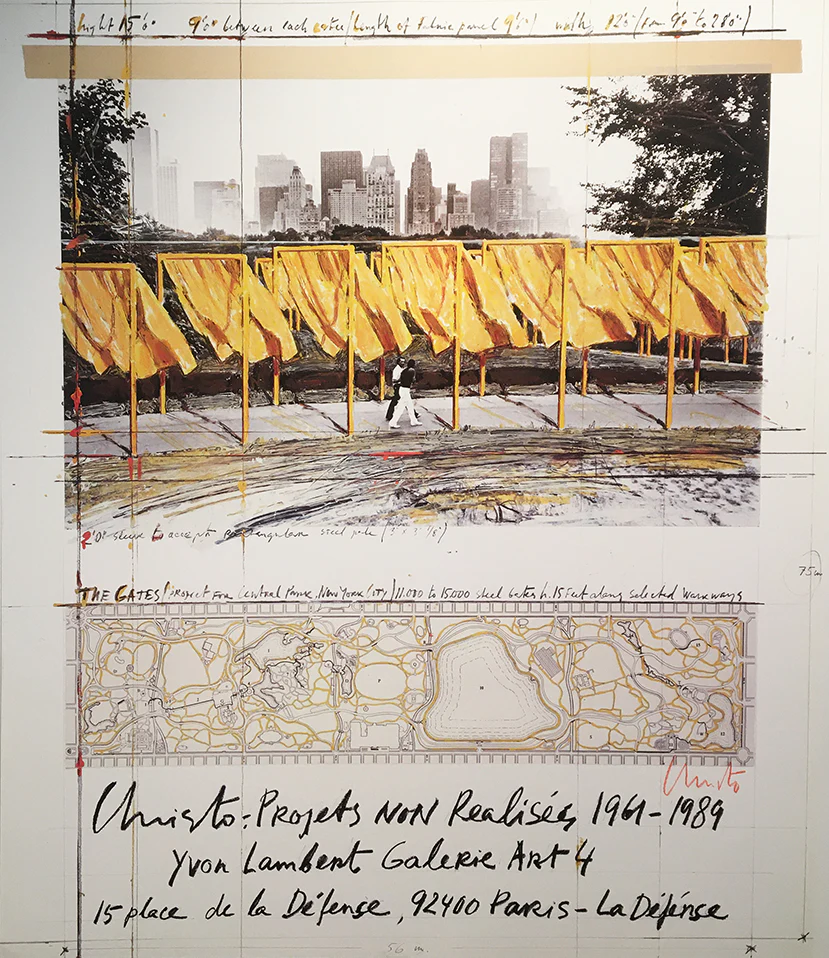 hight 15'0" 9'0" between each gates/Length of fabric panel 9'6") width 12'5" (from 9'0" to 28'0")
2'0" sleeve to accept rectangular steel pole
THE GATES/PROJECT FOR Central Park, New York City/11.000 to 15000 steel Gates h. 15 Feet along selected walkways
Christo
Christo: Projets NON Realisés 1961-1989
Yvon Lambert Galerie Art 4
15 place de la Défense, 92400 PARIS - La Défense
75 cm
56 m.